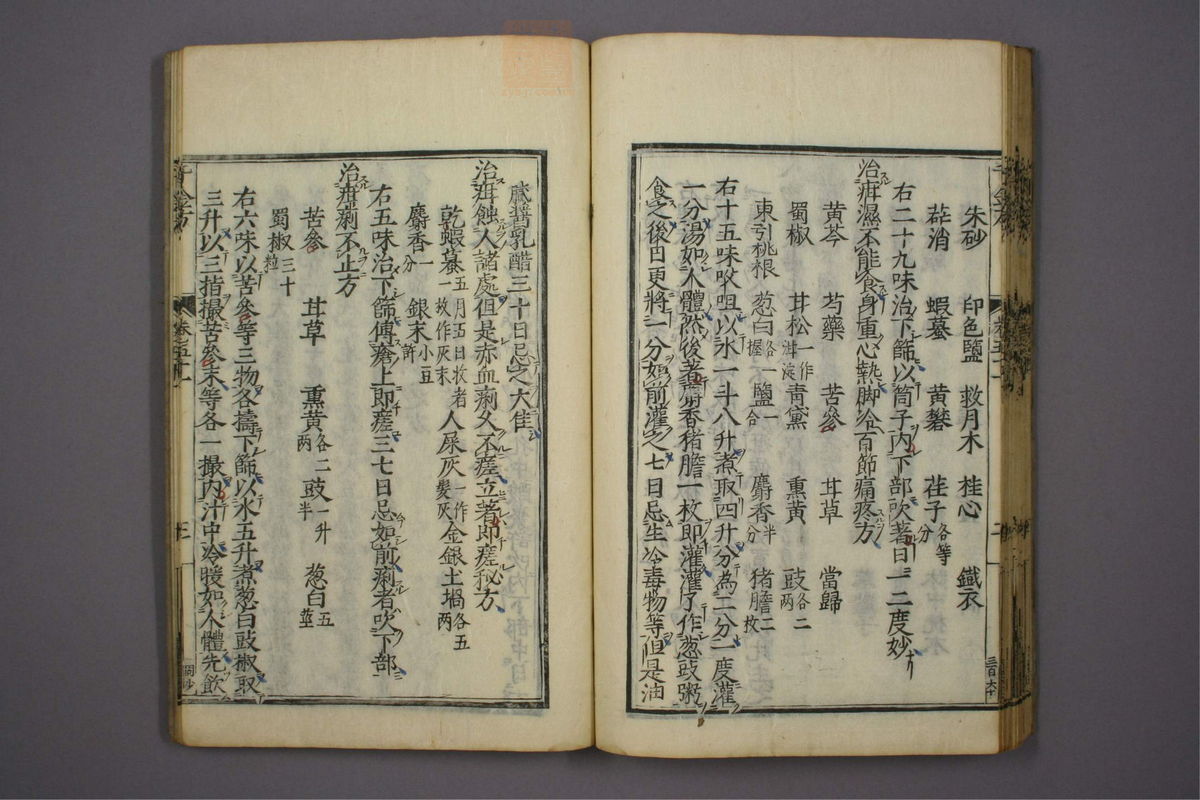 朱砂 印色鹽 救月木 桂心 鐵衣
硭消 蝦蟇 黃礬 荏子各等分
右二十九味治下篩以筒子内下部吹著日一二度妙
治疳濕不能食身重心熱脚冷百節痛疼方
黃芩 芍藥 苦參 甘草 當歸
蜀椒 甘松一作淠淀 青黛 熏黃 豉各二兩
東引桃根 葱白各一握 鹽一合 麝香半分 猪膽二枚
右十五味㕮咀以水一斗八升煮取四升分為二分一度灌
一分湯如人體然後著麝香猪膽一枚即灌灌了作葱豉粥
食之後日更將一分如前灌之七日忌生冷毒物等但是油
膩醬乳醋三十日忌之大佳
治疳蝕人諸處但是赤血痢久不瘥立著即瘥秘方
乾蝦蟇一枚五月五日收者作灰末 人屎灰一作髮灰 金銀土堝各五兩
麝香一分 銀末小豆許
右五味治下篩傅瘡上即瘥三七日忌如前痢者吹下部
治疳痢不止方
苦參 甘草 熏黃各二兩 豉一升半 葱白五莖
蜀椒三十粒
右六味以苦參等三物各擣下篩以水五升煮葱白豉椒取
三升以三指撮苦參末等各一撮内汁中冷暖如人體先飲
千金方
卷五十一